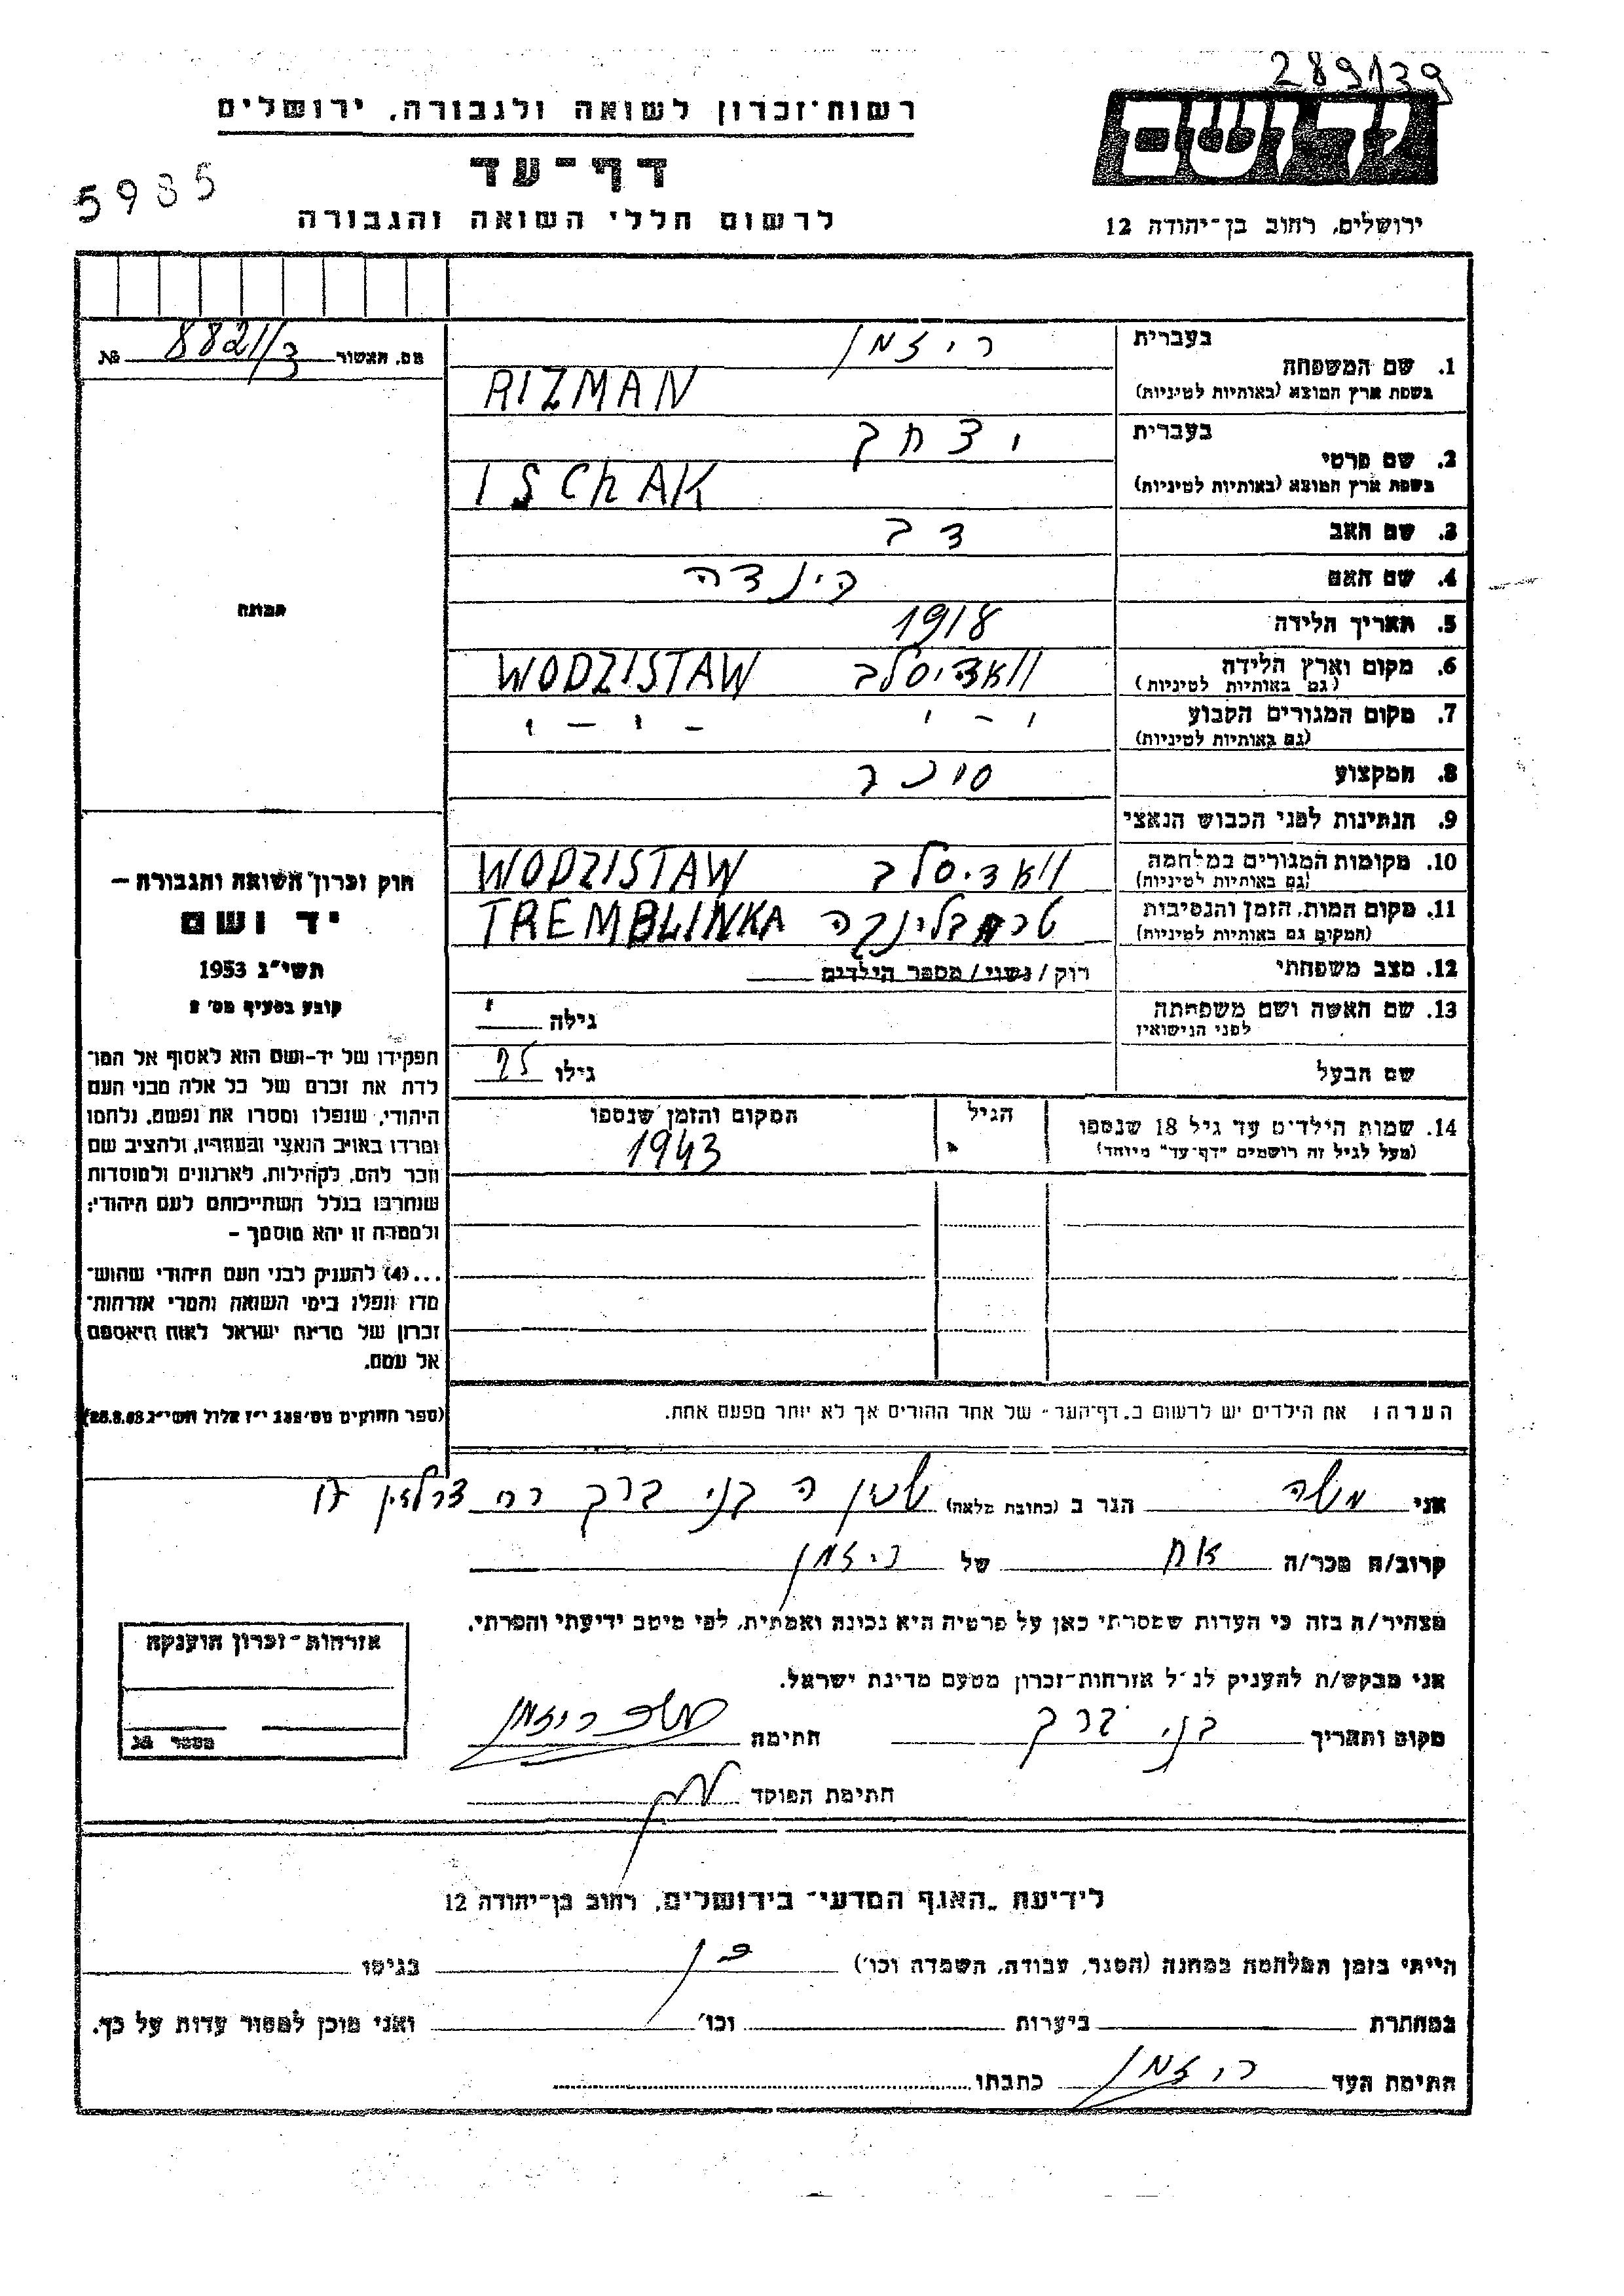 289139
רשות־זכרון לשואה ולגבורה, ירושלים
ידושם
דף־עד
5985
לרשום חללי השואה והגבורה
ירושלים, רחוב בן־יהודה 12
מס. האשור 8821/ №
1. שם המשפחה בעברית ריזמן
בשפת ארץ המוצא (באותיות לטיניות) RIZMAN
2. שם פרטי בעברית יצחק
בשפת ארץ המוצא (באותיות לטיניות) ISChAK
3. שם האב דב
4. שם האם הינדה
5. תאריך הלידה 1918
6. מקום וארץ הלידה וואדיסלב WODZISTAW
(גם באותיות לטיניות)
7. מקום המגורים הקבוע י - י - י - י
(גם באותיות לטיניות)
8. המקצוע סוכר
9. הנתינות לפני הכבוש הנאצי
10. מקומות המגורים במלחמה וואדיסלב WODZISTAW
(גם באותיות לטיניות)
11. מקום המות, הזמן והנסיבות טרמבלינקה TREMBLINKA
(המקום גם באותיות לטיניות)
12. מצב משפחתי רוק / נשוי / מספר הילדים
13. שם האשה ושם משפחתה גילה
לפני הנישואין
שם הבעל גילו 25
14. שמות הילדים עד גיל 18 שנספו הגיל המקום והזמן שנספו
(מעל לגיל זה רושמים "דף־עד" מיוחד) 1943
תמונה
חוק זכרון השואה והגבורה —
יד ושם
תשי"ג 1953
קובע בסעיף מס' 2
תפקידו של יד-ושם הוא לאסוף אל המו־
לדת את זכרם של כל אלה מבני העם
היהודי, שנפלו ומסרו את נפשם, נלחמו
ומרדו באויב הנאצי ובעוזריו, ולהציב שם
וזכר להם, לקהילות, לארגונים ולמוסדות
שנחרבו בגלל השתייכותם לעם היהודי;
ולמטרה זו יהא מוסמך —
...(4) להעניק לבני העם היהודי שהוש־
מדו ונפלו בימי השואה והמרי אזרחות־
זכרון של מדינת ישראל לאות היאספם
אל עמם.
(ספר החוקים מס' 132 י"ז אלול תשי"ג 28.8.53)
הערה: את הילדים יש לרשום ב„דף־העד" של אחד ההורים אך לא יותר מפעם אחת.
אני משה הגר ב (כתובת מלאה) שכון ה בני ברק רח
קרוב/ה מכר/ה אח של ריזמן
מצהיר/ה בזה כי העדות שמסרתי כאן על פרטיה היא נכונה ואמתית, לפי מיטב ידיעתי והכרתי.
אני מבקש/ת להעניק לנ"ל אזרחות־זכרון מטעם מדינת ישראל.
מקום ותאריך בני ברק חתימה משה ריזמן
חתימת הפוקד
אזרחות־זכרון הוענקה
מספר
לידיעת „האגף המדעי" בירושלים, רחוב בן־יהודה 12
הייתי בזמן המלחמה במחנה (הסגר, עבודה, השמדה וכו') כן בגיטו
במחתרת ביערות וכו' ואני מוכן למסור עדות על כך.
חתימת העד ריזמן כתבתו